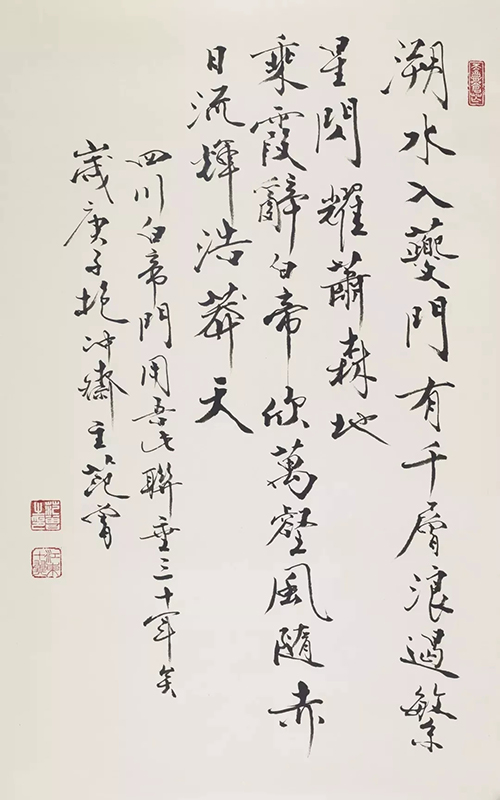 溯水入夔門有千層浪遏繁
星閃耀蕭森地
乘霞辭白帝欣萬壑風隨赤
日流輝浩莽天
四川白帝門用吾此聯垂三十年矣
歲庚子抱沖齋主范曾